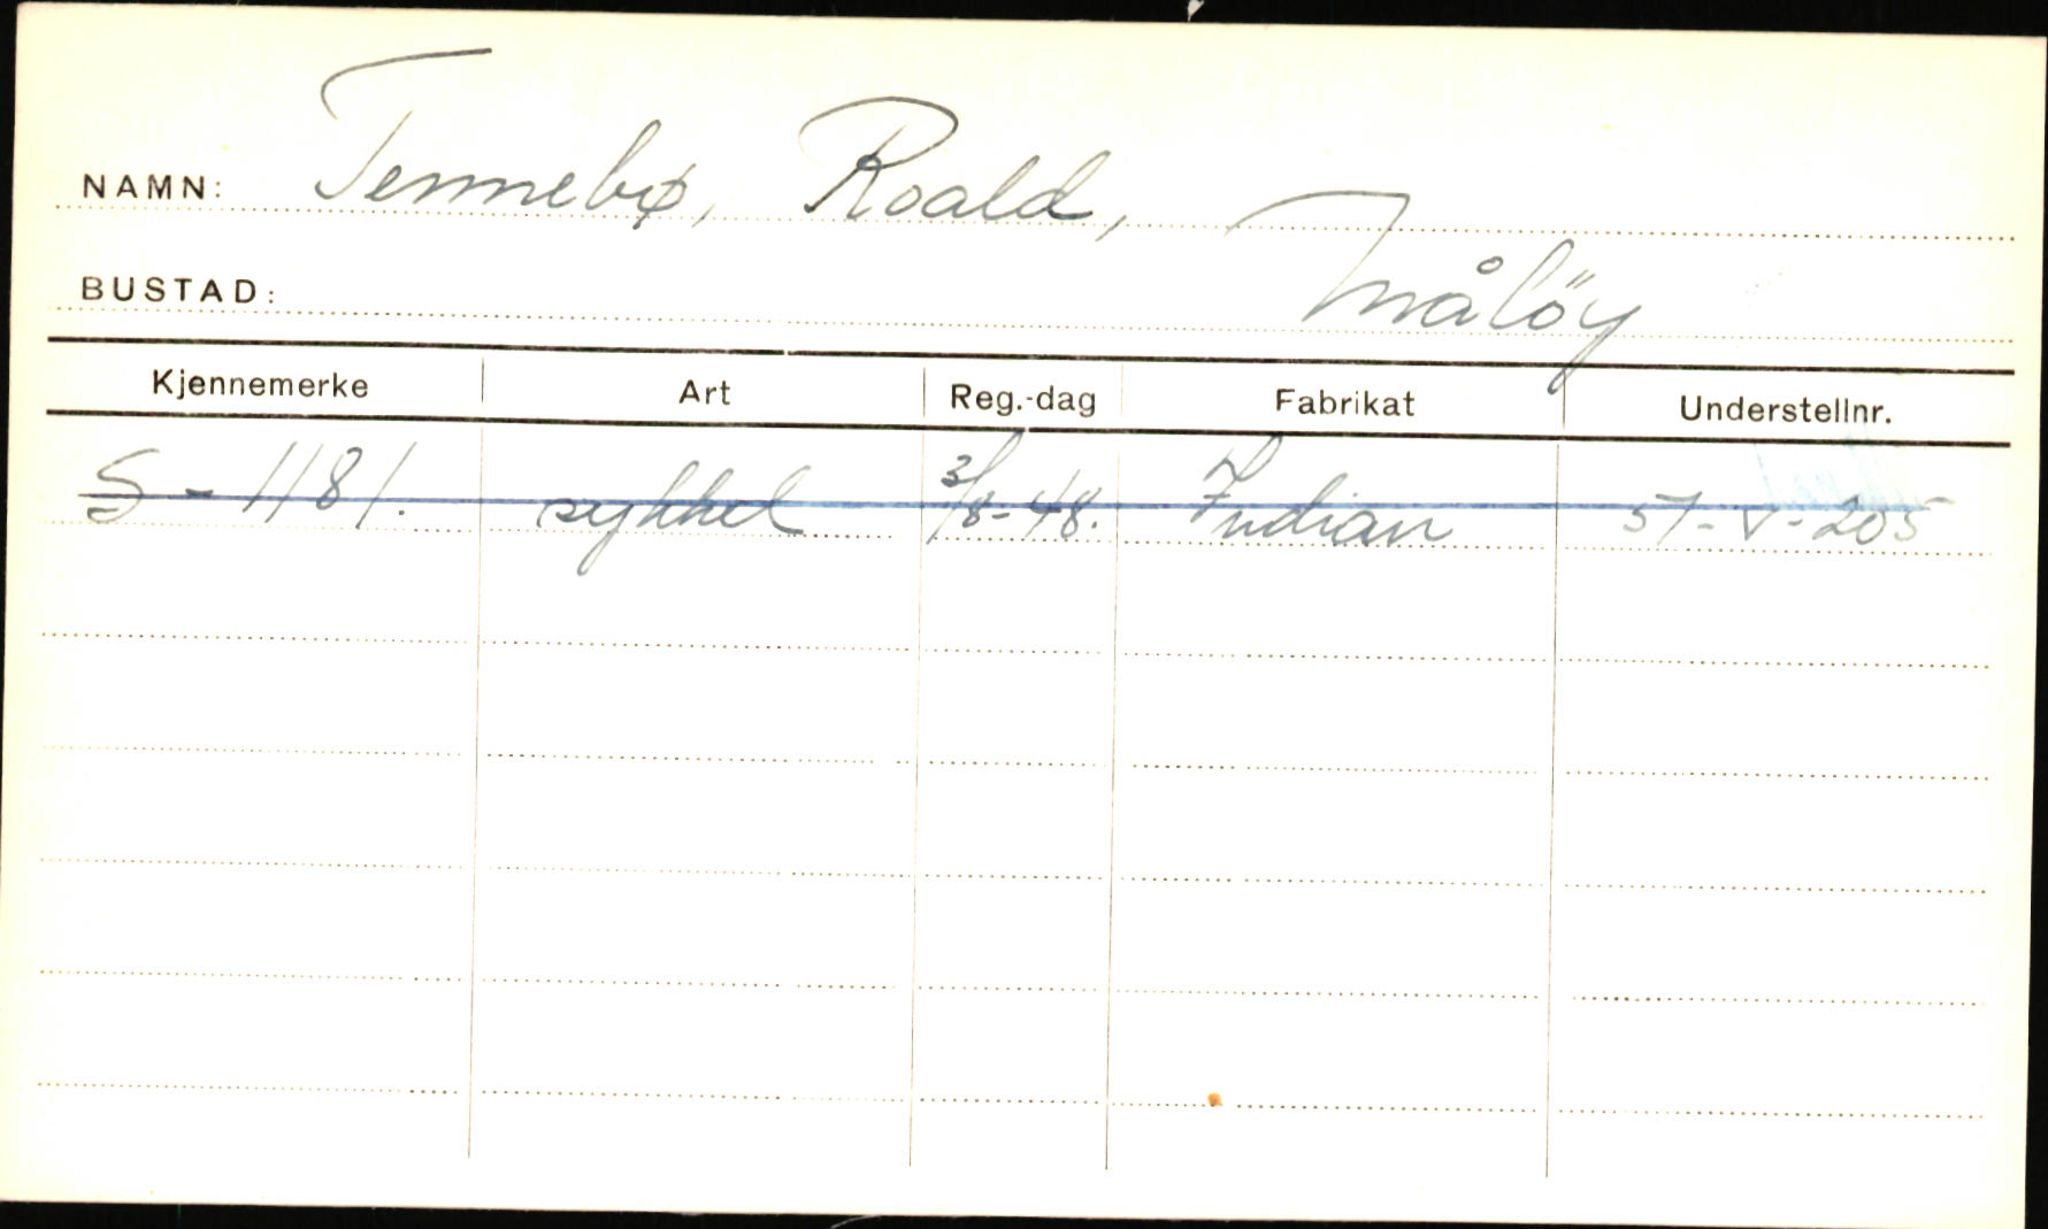 NAMN: Tennebø, Roald,
BUSTAD: Måløy
Kjennemerke Art Reg.-dag Fabrikat Understellnr.
S-1181. sykkel 3/8-48. Indian 57-V-205